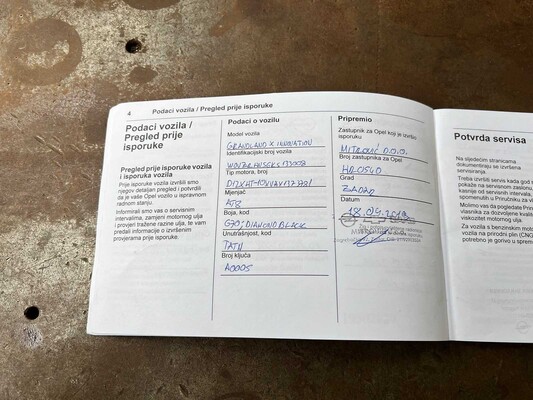 4 Podaci vozila / Pregled prije isporuke
Podaci vozila /
Pregled prije
isporuke
Pregled prije isporuke vozila
i isporuka vozila
Prije isporuke vozila izvršili smo
njegov detaljan pregled i potvrdili
da je vaše Opel vozilo u ispravnom
radnom stanju.
Informirali smo vas o servisnim
intervalima, zamjeni motornog ulja
i provjeri tražene razine ulja, te vam
predali informacije o izvršenim
provjerama prije isporuke.
Podaci o vozilu
Model vozila
GRANDLAND X INNOVATION
Identifikacijski broj vozila
Tip motora, broj
Mjenjač
AT8
Boja, kod
G7O; DIAMOND BLACK
Unutrašnjost, kod
TATN
Broj ključa
A0005
Pripremio
Zastupnik za Opel koji je izvršio
isporuku
MITROVIĆ D.O.O.
Broj zastupnika za Opel
HR-0540
Grad
ZADAR
Datum
18.04.2019
Potvrda servisa
Na sljedećim stranicama
dokumentiraju se izvršena
servisiranja.
Treba izvršiti servis kada god
pokaže na servisnom zaslonu,
kasnije od servisnih intervala,
spomenutih u Priručniku za vl
Molimo vas da pogledate Prir
vlasnika za dozvoljene kvalite
viskozitet motornog ulja.
Za vozila s benzinskim moto
vozila na prirodni plin (CNG
potrebno je gorivo u spremn